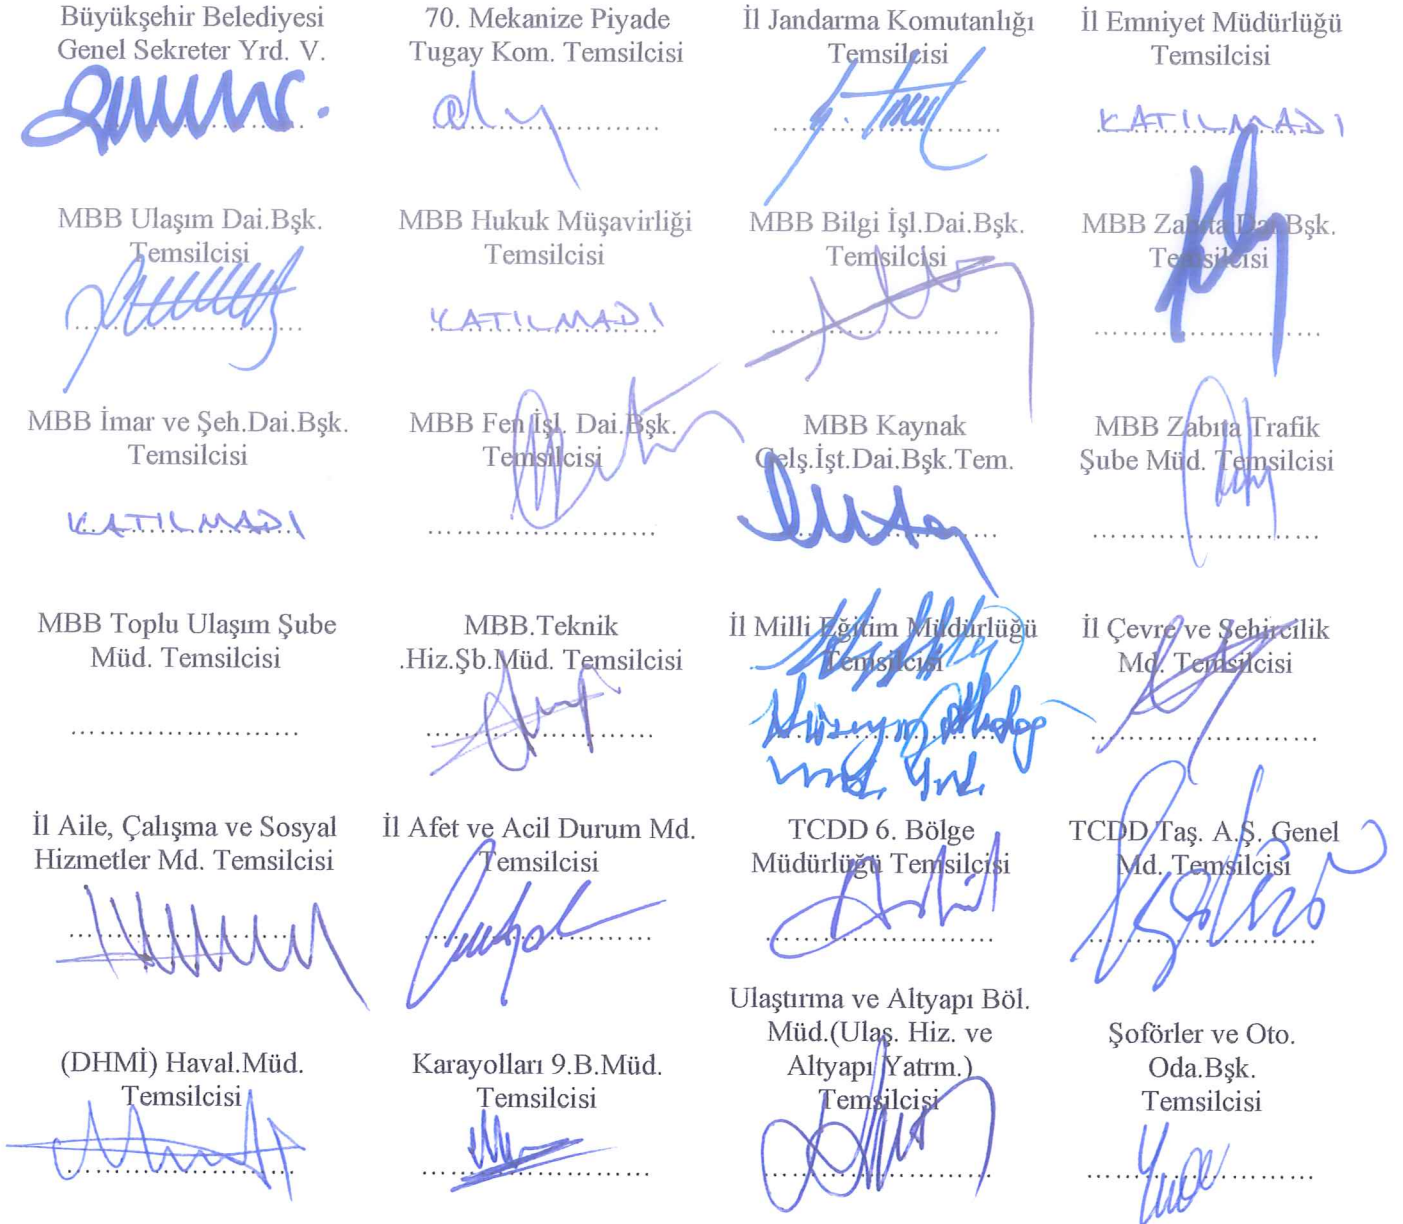 Büyükşehir Belediyesi
Genel Sekreter Yrd. V.
70. Mekanize Piyade
Tugay Kom. Temsilcisi
........................
İl Jandarma Komutanlığı
Temsilcisi
........................
İl Emniyet Müdürlüğü
Temsilcisi
KATILMADI
MBB Ulaşım Dai.Bşk.
Temsilcisi
........................
MBB Hukuk Müşavirliği
Temsilcisi
KATILMADI
MBB Bilgi İşl.Dai.Bşk.
Temsilcisi
........................
MBB Zabıta Dai.Bşk.
Temsilcisi
........................
MBB İmar ve Şeh.Dai.Bşk.
Temsilcisi
KATILMADI
MBB Fen İşl. Dai.Bşk.
Temsilcisi
........................
MBB Kaynak
Gelş.İşt.Dai.Bşk.Tem.
........................
MBB Zabıta Trafik
Şube Müd. Temsilcisi
........................
MBB Toplu Ulaşım Şube
Müd. Temsilcisi
........................
MBB.Teknik
.Hiz.Şb.Müd. Temsilcisi
........................
İl Milli Eğitim Müdürlüğü
Temsilcisi
Hüseyin
Md. Yrd.
İl Çevre ve Şehircilik
Md. Temsilcisi
........................
İl Aile, Çalışma ve Sosyal
Hizmetler Md. Temsilcisi
........................
İl Afet ve Acil Durum Md.
Temsilcisi
........................
TCDD 6. Bölge
Müdürlüğü Temsilcisi
........................
TCDD Taş. A.Ş. Genel
Md. Temsilcisi
........................
(DHMİ) Haval.Müd.
Temsilcisi
........................
Karayolları 9.B.Müd.
Temsilcisi
........................
Ulaştırma ve Altyapı Böl.
Müd.(Ulaş. Hiz. ve
Altyapı Yatrm.)
Temsilcisi
........................
Şoförler ve Oto.
Oda.Bşk.
Temsilcisi
........................